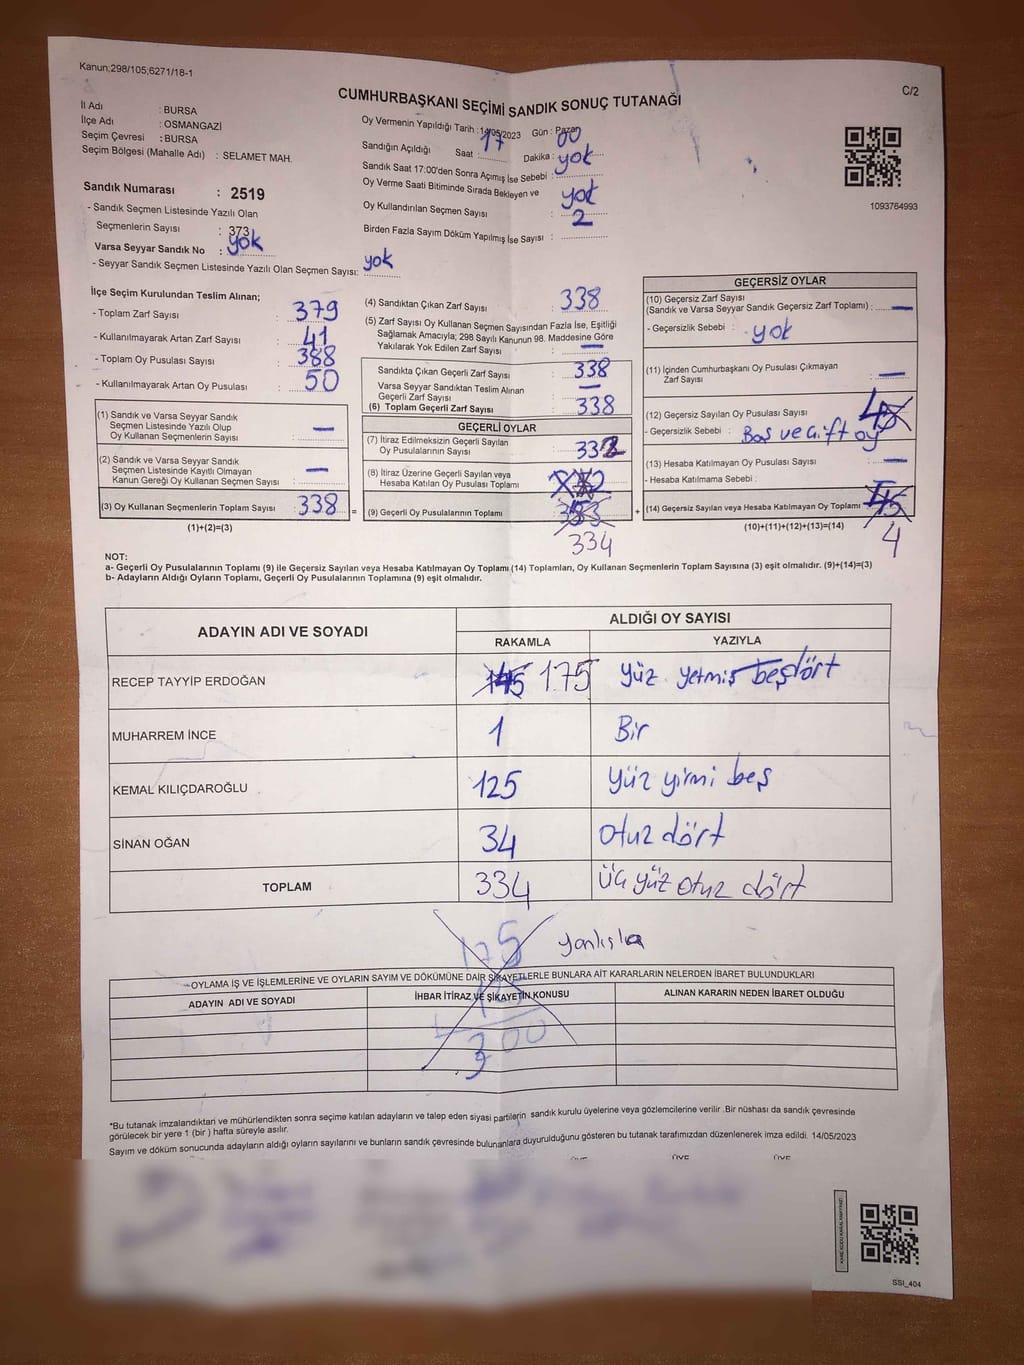 Kanun;298/105;6271/18-1
C/2
CUMHURBAŞKANI SEÇİMİ SANDIK SONUÇ TUTANAĞI
İl Adı : BURSA
İlçe Adı : OSMANGAZİ
Seçim Çevresi : BURSA
Seçim Bölgesi (Mahalle Adı) : SELAMET MAH.
Sandık Numarası : 2519
- Sandık Seçmen Listesinde Yazılı Olan
Seçmenlerin Sayısı : 373
Varsa Seyyar Sandık No : yok
- Seyyar Sandık Seçmen Listesinde Yazılı Olan Seçmen Sayısı: yok
Oy Vermenin Yapıldığı Tarih : 14/05/2023 Gün : Pazar
Sandığın Açıldığı Saat : 17 Dakika : 00
Sandık Saat 17:00'den Sonra Açımış İse Sebebi : yok
Oy Verme Saati Bitiminde Sırada Bekleyen ve
Oy Kullandırılan Seçmen Sayısı : yok
Birden Fazla Sayım Döküm Yapılmış İse Sayısı : 2
1093764993
İlçe Seçim Kurulundan Teslim Alınan;
- Toplam Zarf Sayısı : 379
- Kullanılmayarak Artan Zarf Sayısı : 41
- Toplam Oy Pusulası Sayısı : 388
- Kullanılmayarak Artan Oy Pusulası : 50
(1) Sandık ve Varsa Seyyar Sandık
Seçmen Listesinde Yazılı Olup
Oy Kullanan Seçmenlerin Sayısı : —
(2) Sandık ve Varsa Seyyar Sandık
Seçmen Listesinde Kayıtlı Olmayan
Kanun Gereği Oy Kullanan Seçmen Sayısı : —
(3) Oy Kullanan Seçmenlerin Toplam Sayısı : 338
(1)+(2)=(3)
=
(4) Sandıktan Çıkan Zarf Sayısı : 338
(5) Zarf Sayısı Oy Kullanan Seçmen Sayısından Fazla İse, Eşitliği
Sağlamak Amacıyla; 298 Sayılı Kanunun 98. Maddesine Göre
Yakılarak Yok Edilen Zarf Sayısı : —
Sandıkta Çıkan Geçerli Zarf Sayısı : 338
Varsa Seyyar Sandıktan Teslim Alınan
Geçerli Zarf Sayısı : —
(6) Toplam Geçerli Zarf Sayısı : 338
GEÇERLİ OYLAR
(7) İtiraz Edilmeksizin Geçerli Sayılan
Oy Pusulalarının Sayısı :
(8) İtiraz Üzerine Geçerli Sayılan veya
Hesaba Katılan Oy Pusulası Toplamı
(9) Geçerli Oy Pusulalarının Toplamı
334
+
GEÇERSİZ OYLAR
(10) Geçersiz Zarf Sayısı
(Sandık ve Varsa Seyyar Sandık Geçersiz Zarf Toplamı) : —
- Geçersizlik Sebebi : yok
(11) İçinden Cumhurbaşkanı Oy Pusulası Çıkmayan
Zarf Sayısı : —
(12) Geçersiz Sayılan Oy Pusulası Sayısı : 4
- Geçersizlik Sebebi : Boş ve çift oy
(13) Hesaba Katılmayan Oy Pusulası Sayısı : —
- Hesaba Katılmama Sebebi :
(14) Geçersiz Sayılan veya Hesaba Katılmayan Oy Toplamı
(10)+(11)+(12)+(13)=(14)
4
NOT:
a- Geçerli Oy Pusulalarının Toplamı (9) ile Geçersiz Sayılan veya Hesaba Katılmayan Oy Toplamı (14) Toplamları, Oy Kullanan Seçmenlerin Toplam Sayısına (3) eşit olmalıdır. (9)+(14)=(3)
b- Adayların Aldığı Oyların Toplamı, Geçerli Oy Pusulalarının Toplamına (9) eşit olmalıdır.
ADAYIN ADI VE SOYADI
ALDIĞI OY SAYISI
RAKAMLA YAZIYLA
RECEP TAYYİP ERDOĞAN 175 yüz yetmiş beşdört
MUHARREM İNCE 1 Bir
KEMAL KILIÇDAROĞLU 125 yüz yirmi beş
SİNAN OĞAN 34 otuz dört
TOPLAM 334 üç yüz otuz dört
175 yanlışla
OYLAMA İŞ VE İŞLEMLERİNE VE OYLARIN SAYIM VE DÖKÜMÜNE DAİR ŞİKAYETLERLE BUNLARA AİT KARARLARIN NELERDEN İBARET BULUNDUKLARI
ADAYIN ADI VE SOYADI İHBAR İTİRAZ VE ŞİKAYETİN KONUSU ALINAN KARARIN NEDEN İBARET OLDUĞU
300
*Bu tutanak imzalandıktan ve mühürlendikten sonra seçime katılan adayların ve talep eden siyasi partilerin sandık kurulu üyelerine veya gözlemcilerine verilir .Bir nüshası da sandık çevresinde
görülecek bir yere 1 (bir ) hafta süreyle asılır.
Sayım ve döküm sonucunda adayların aldığı oyların sayılarını ve bunların sandık çevresinde bulunanlara duyurulduğunu gösteren bu tutanak tarafımızdan düzenlenerek imza edildi. 14/05/2023
ÜYE ÜYE ÜYE
SSI_404